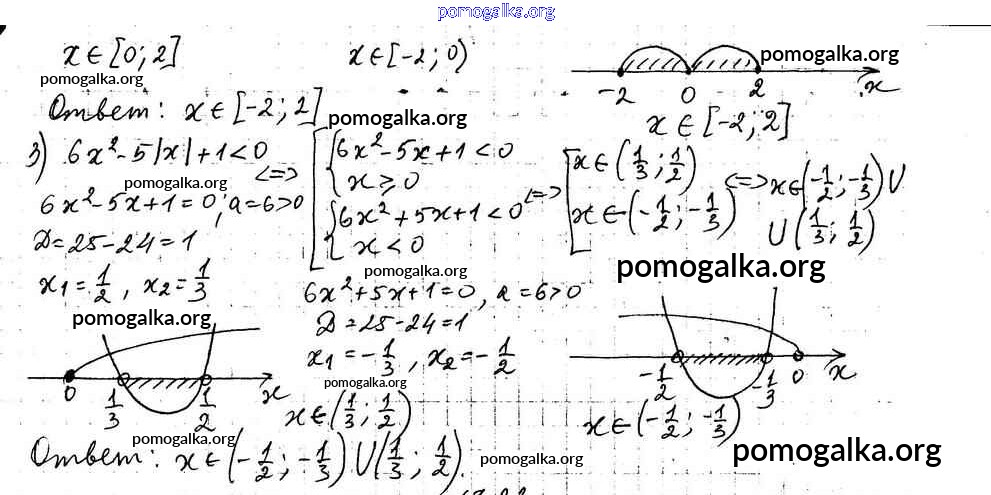 pomogalka.org
x∈[0;2]
x∈[-2;0)
pomogalka.org
pomogalka.org
-2 0 2 x
Ответ: x∈[-2;2]
pomogalka.org
x∈[-2;2]
3) 6x²-5|x|+1<0 <=> [ { 6x²-5x+1<0
x⩾0
{ 6x²+5x+1<0
x<0
<=> [ x∈(1/3;1/2)
x∈(-1/2;-1/3)
<=> x∈(-1/2;-1/3)∪
∪(1/3;1/2)
pomogalka.org
6x²-5x+1=0; a=6>0
D=25-24=1
x₁=1/2, x₂=1/3
pomogalka.org
pomogalka.org
6x²+5x+1=0, a=6>0
D=25-24=1
x₁=-1/3, x₂=-1/2
pomogalka.org
0 1/3 1/2 x
pomogalka.org
x∈(1/3;1/2)
-1/2 -1/3 0 x
x∈(-1/2;-1/3)
pomogalka.org
Ответ: x∈(-1/2;-1/3)∪(1/3;1/2).
pomogalka.org
pomogalka.org